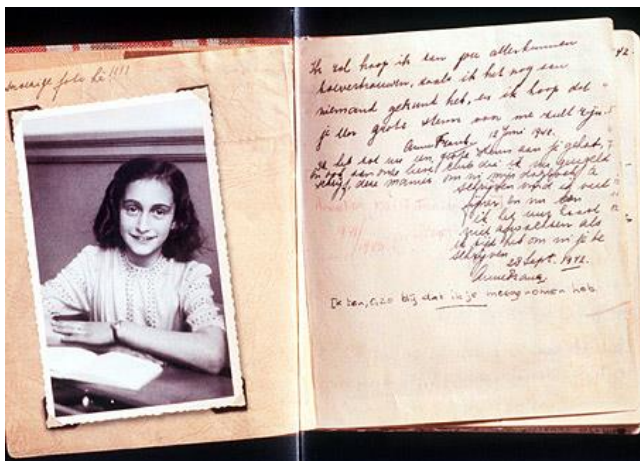 snoezige foto hè!!!!
Ik zal hoop ik aan jou alles kunnen
toevertrouwen, zoals ik het nog aan
niemand gekund heb, en ik hoop dat
je een grote steun voor me zult zijn.
Anne Frank. 12 Juni 1942.
Ik heb tot nu een grote steun aan je gehad,
en ook aan onze lieve club die ik nu geregeld
schrijf, deze manier om in mijn dagboek te
schrijven vind ik veel
fijner en nu kan
ik het haast
niet afwachten als
ik tijd heb om in je te
schrijven.
28 Sept. 1942.
Anne Frank.
Ik ben, o, zo blij dat ik je meegenomen heb.